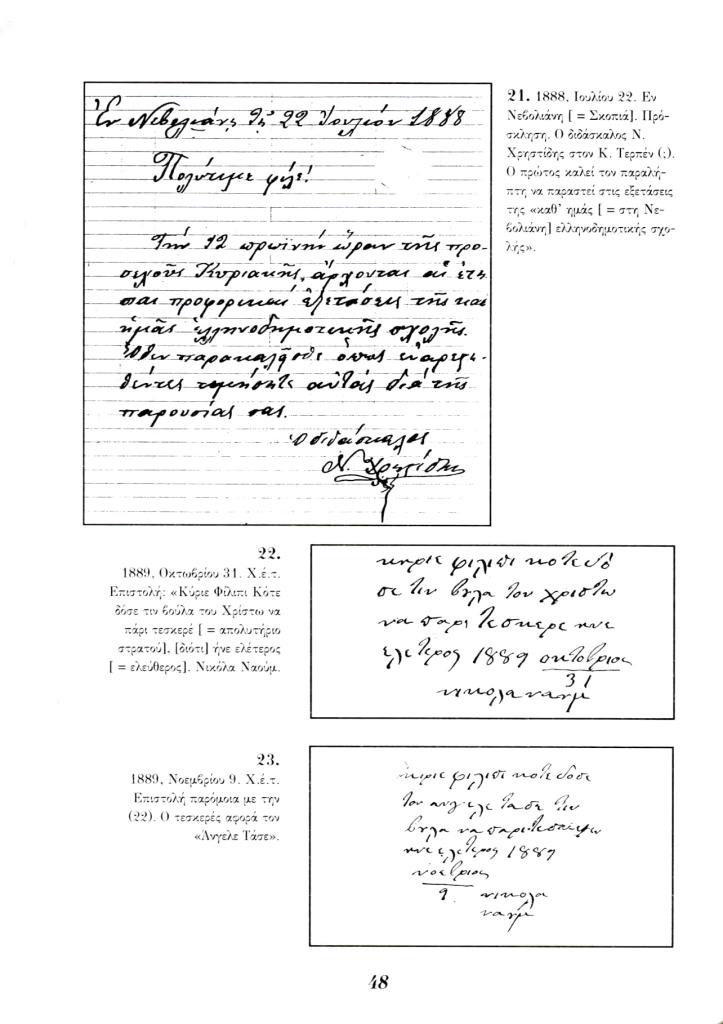 Ἐν Νεβολιάνῃ τῇ 22 Ἰουλίου 1888
Πολύτιμε φίλε!
Τὴν 12 πρωϊνὴν ὥραν τῆς προ-
σεχοῦς Κυριακῆς, ἄρχονται αἱ ἐτή-
σιαι προφορικαὶ ἐξετάσεις τῆς καθ'
ἡμᾶς ἑλληνοδημοτικῆς σχολῆς.
Ὅθεν παρακαλεῖσθε ὅπως εὐαρεσ-
θέντες τιμήσητε αὐτὰς διὰ τῆς
παρουσίας σας.
Ὁ διδάσκαλος
Ν. Χρηστίδης
21. 1888, Ιουλίου 22. Εν
Νεβολιάνη [ = Σκοπιά]. Πρό-
σκληση. Ο διδάσκαλος Ν.
Χρηστίδης στον Κ. Τερπέν (;).
Ο πρώτος καλεί τον παραλή-
πτη να παραστεί στις εξετάσεις
της «καθ' ημάς [ = στη Νε-
βολιάνη] ελληνοδημοτικής σχο-
λής».
22.
1889, Οκτωβρίου 31. Χ.έ.τ.
Επιστολή: «Κύριε Φίλιπι Κότε
δόσε τιν βούλα του Χρίστω να
πάρι τεσκερέ [ = απολυτήριο
στρατού], [διότι] ήνε ελέτερος
[ = ελεύθερος]. Νικόλα Ναούμ.
κηριε φιλιπι κοτε δό
σε τιν βυλα του χριστω
να παρι τεσκερε ηνε
ελετερος 1889 οκτοβριος
31
νικολα ναυμ
23.
1889, Νοεμβρίου 9. Χ.έ.τ.
Επιστολή παρόμοια με την
(22). Ο τεσκερές αφορά τον
«Άνγελε Τάσε».
κηριε φιλιπι κοτε δοσε
του ανγελε τασε τιν
βυλα να παρι
ηνε ελετερος 1889
νοεβριος
9 νικολα
ναυμ
48